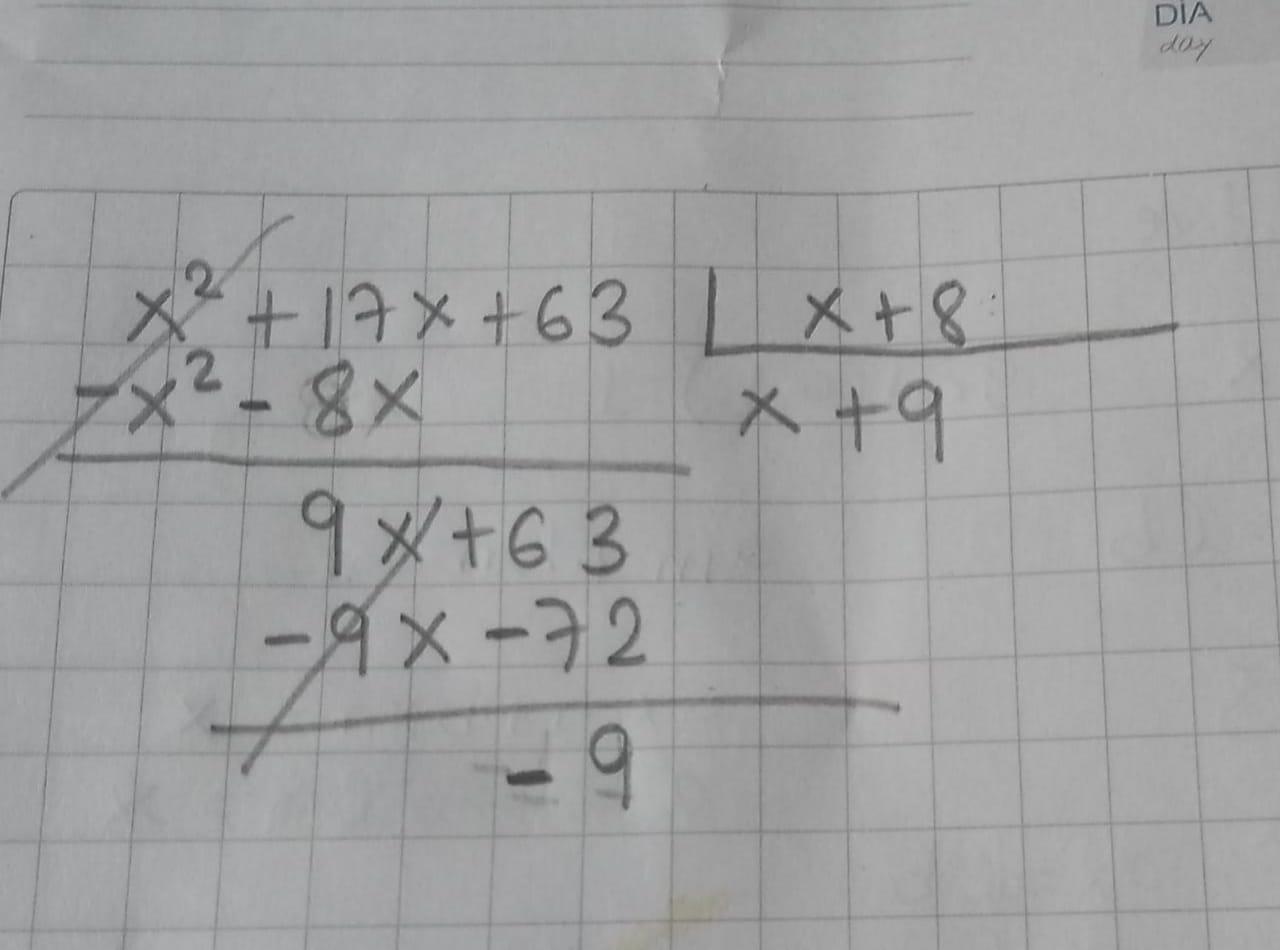 DIA
day
x² + 17x + 63 | x + 8
-x² - 8x x + 9
9x + 63
-9x - 72
- 9